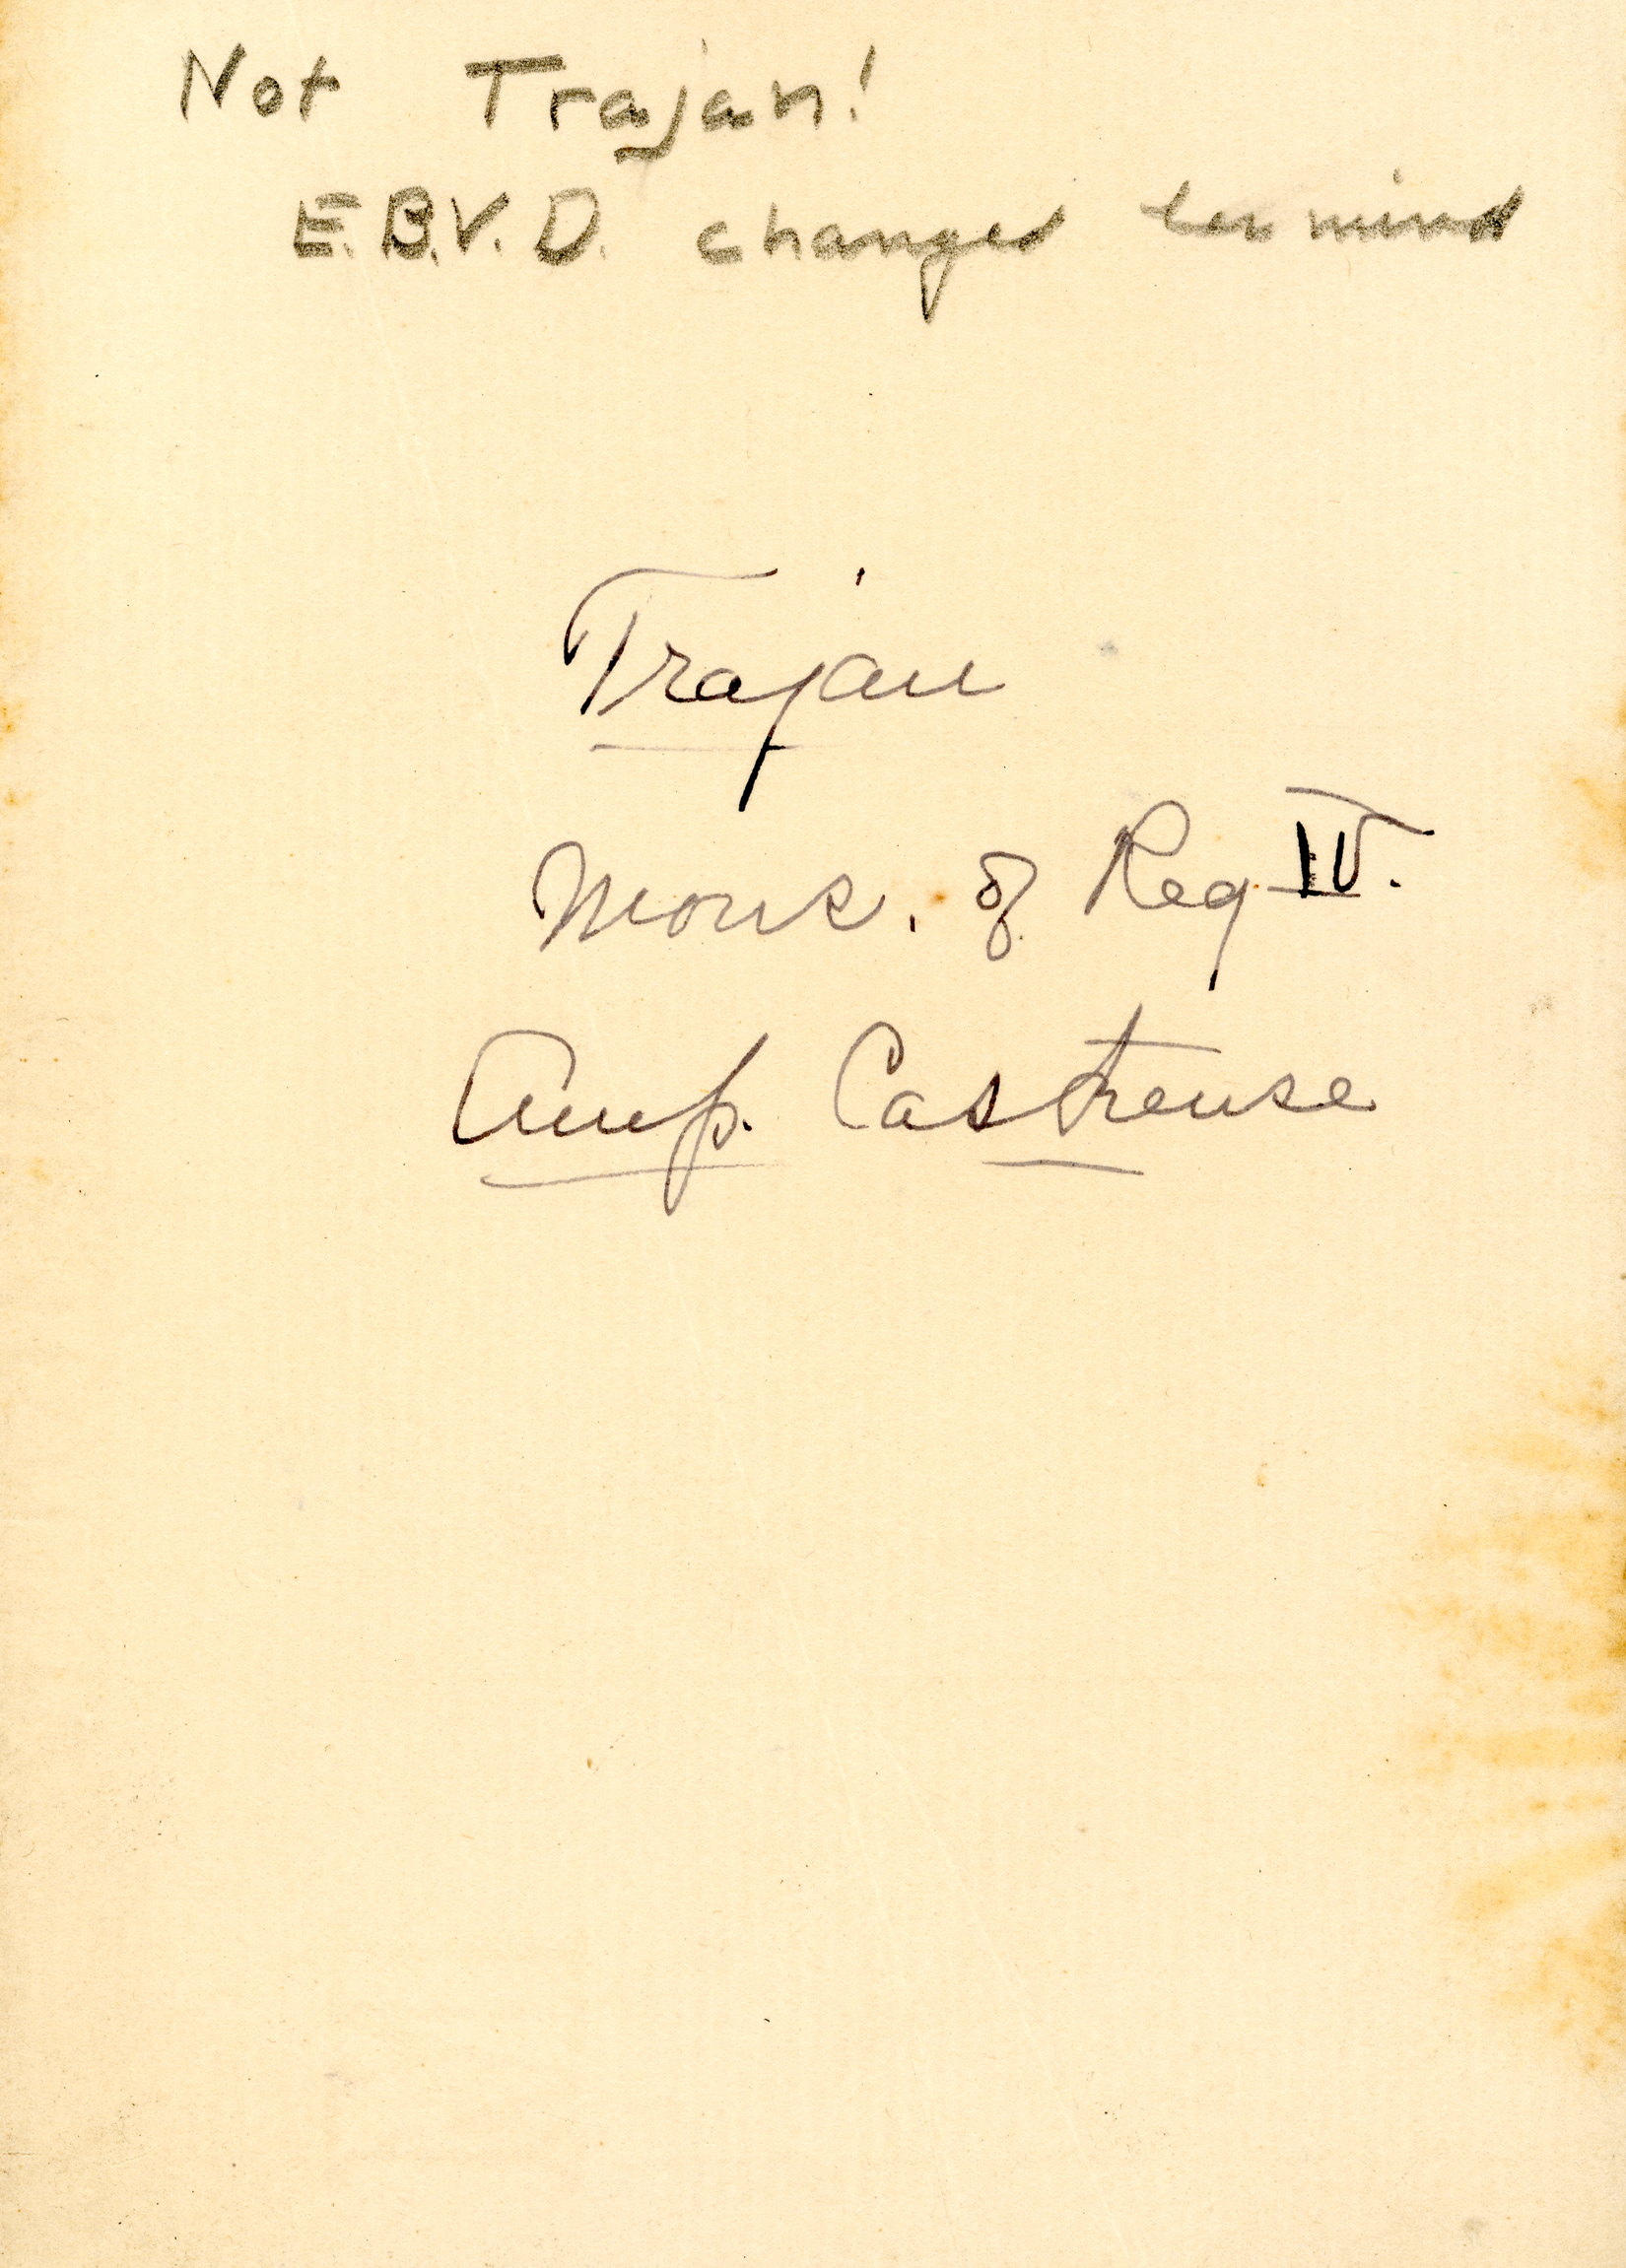 Not Trajan!
E.B.V.D. changed her mind
Trajan
Mons. of Reg. IV.
Amp. Castrense